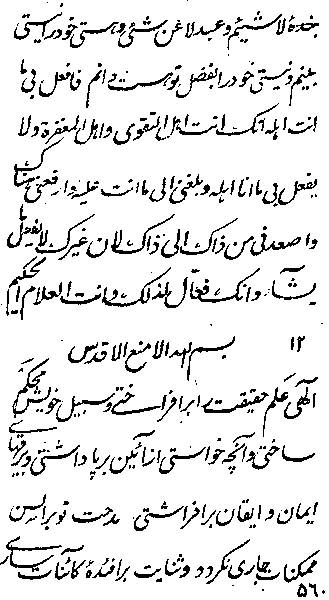 بنده لاشیئیم و عبد لا عن شئ و هستی خود را نیستی
بینم و نیستی خود را بفضل تو هست دانم فافعل بی ما
انت اهله انک انت اهل التقوی و اهل المغفرة ولا
یفعل بی ما انا اهله و بلغنی الی ما انت علیه وارفعنی هناک
واصعدنی من ذاک الی ذاک لان غیرک لا یفعل ما
یشاء وانک فعال لذلک وانت العلام الحکیم
۱۲ بسم الله الامنع الاقدس
الهی علم حقیقت را برافراختی و سبیل خویش محکم
ساختی و آنچه خواستی از آئین برپا داشتی و بیرقهای
ایمان و ایقان برافراشتی مدحت تو بر السن
ممکنات جاری نگردد و ثنایت بر افئدهٔ کائنات ساری
۵۶۰